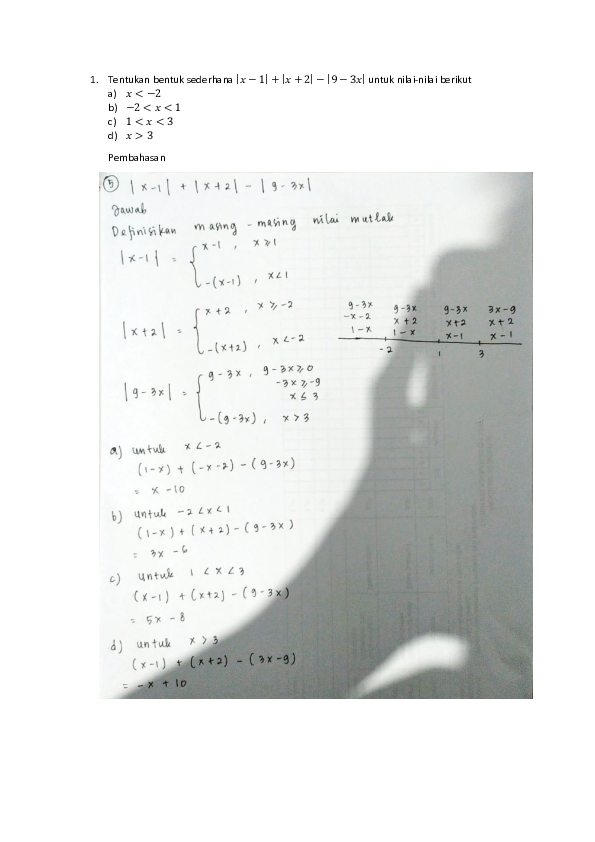 1. Tentukan bentuk sederhana |x − 1| + |x + 2| − |9 − 3x| untuk nilai-nilai berikut
a) x < −2
b) −2 < x < 1
c) 1 < x < 3
d) x > 3
Pembahasan
⑤ |x-1| + |x+2| - |9-3x|
Jawab
Definisikan masing-masing nilai mutlak
|x-1| = { x-1 , x ≥ 1
-(x-1) , x < 1
|x+2| = { x+2 , x ≥ -2
-(x+2) , x < -2
9-3x 9-3x 9-3x 3x-9
-x-2 x+2 x+2 x+2
1-x 1-x x-1 x-1
-2 1 3
|9-3x| = { 9-3x , 9-3x ≥ 0
-3x ≥ -9
x ≤ 3
-(9-3x) , x > 3
a) untuk x < -2
(1-x) + (-x-2) - (9-3x)
= x - 10
b) untuk -2 < x < 1
(1-x) + (x+2) - (9-3x)
= 3x - 6
c) untuk 1 < x < 3
(x-1) + (x+2) - (9-3x)
= 5x - 8
d) untuk x > 3
(x-1) + (x+2) - (3x-9)
= -x + 10